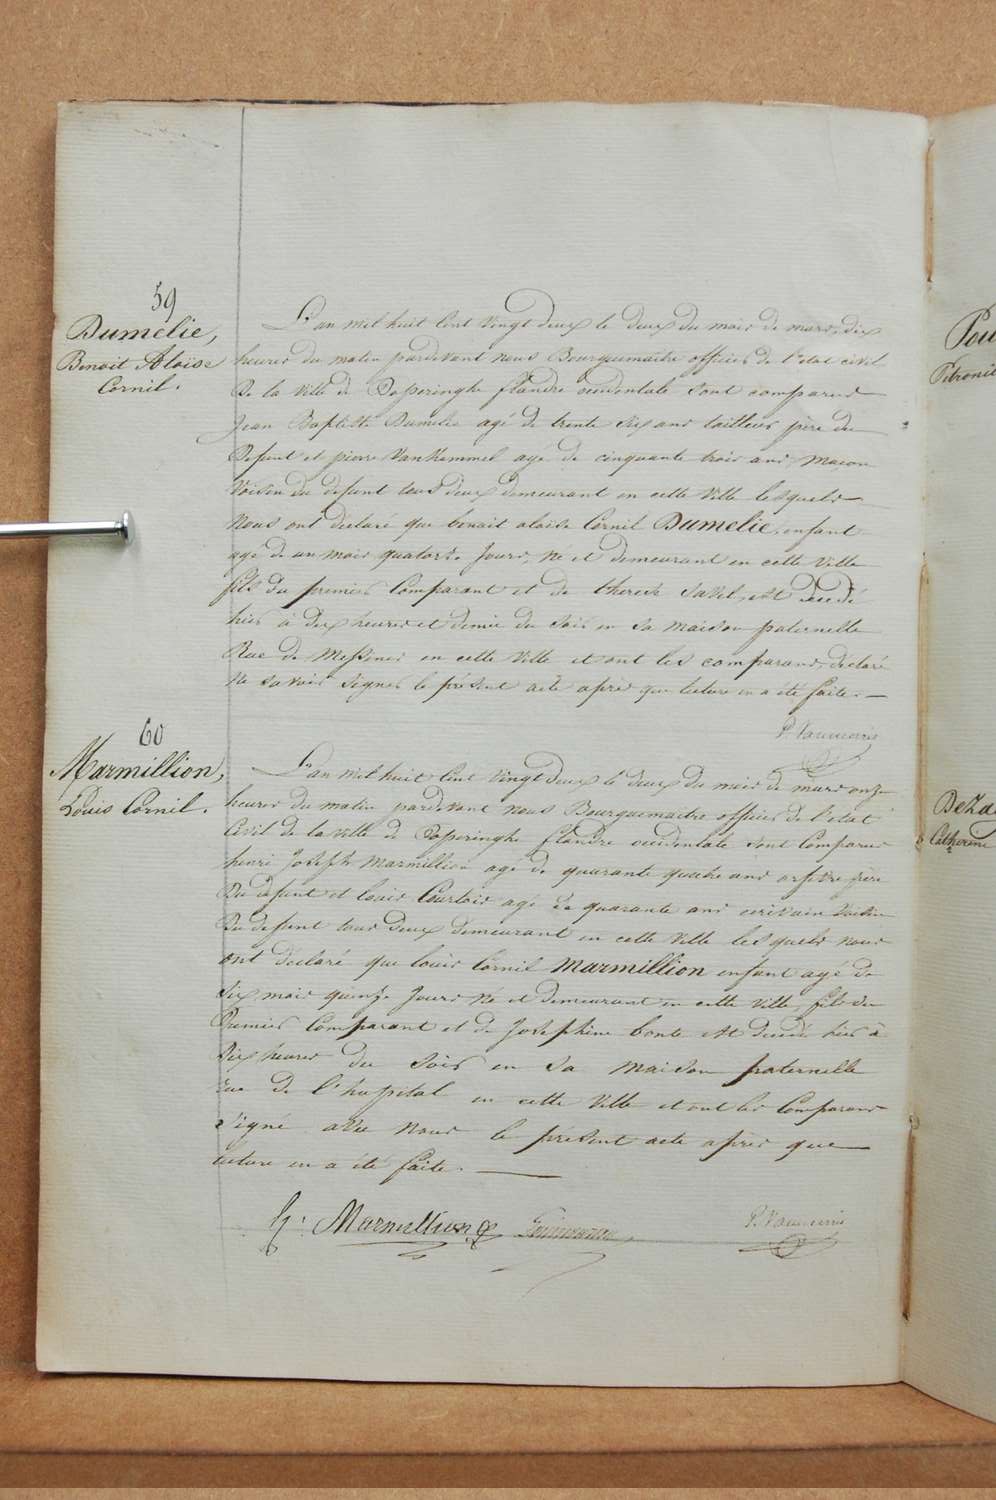 59
Dumelie,
Benoit Aloïse
Cornil.
L'an mil huit Cent vingt deux le deux du mois de mars, dix
heures du matin pardevant nous Bourguemaitre officier de l'etat civil
De la ville de Poperinghe flandre occidentale sont comparus
Jean Baptiste Dumelie agé de trente six ans tailleur père du
Defunt et pierre Vankemmel agé de cinquante trois ans, Maçon
Voisin du defunt tous deux demeurant en cette Ville lesquels
Nous ont déclaré que benoit aloise Cornil Dumelie, enfant
agé de un mois quatorze Jours, né et demeurant en cette Ville
fils du premier Comparant et de therese Savel, est decedé
hier à dix heures et demie du Soir en sa maison paternelle
Rue de Messines en cette Ville et ont les comparans, déclaré
Ne savoir signer le présent acte après que lecture en a été faite.
60
Marmillion,
Louis Cornil.
L'an mil huit Cent Vingt deux le deux du mois de mars onze
heures du matin pardevant nous Bourguemaitre officier de l'etat
Civil de la ville de Poperinghe flandre occidentale sont Comparus
henri Joseph Marmillion agé de quarante quatre ans orfevre père
Du defunt et louis Courtois agé de quarante ans ecrivain Voisin
Du defunt tous deux demeurant en cette Ville lesquels nous
ont déclaré que louis Cornil Marmillion enfant agé de
Six mois quinze Jours né et demeurant en cette Ville, fils du
Premier Comparant et de Josephine bonte est decedé hier à
Six heures du soir en sa maison paternelle
rue de l'hospital en cette Ville et ont les Comparans
Signé avec nous le présent acte après que
lecture en a été faite.
h. Marmillion
Pou
Petronil
DeZa
Catherine